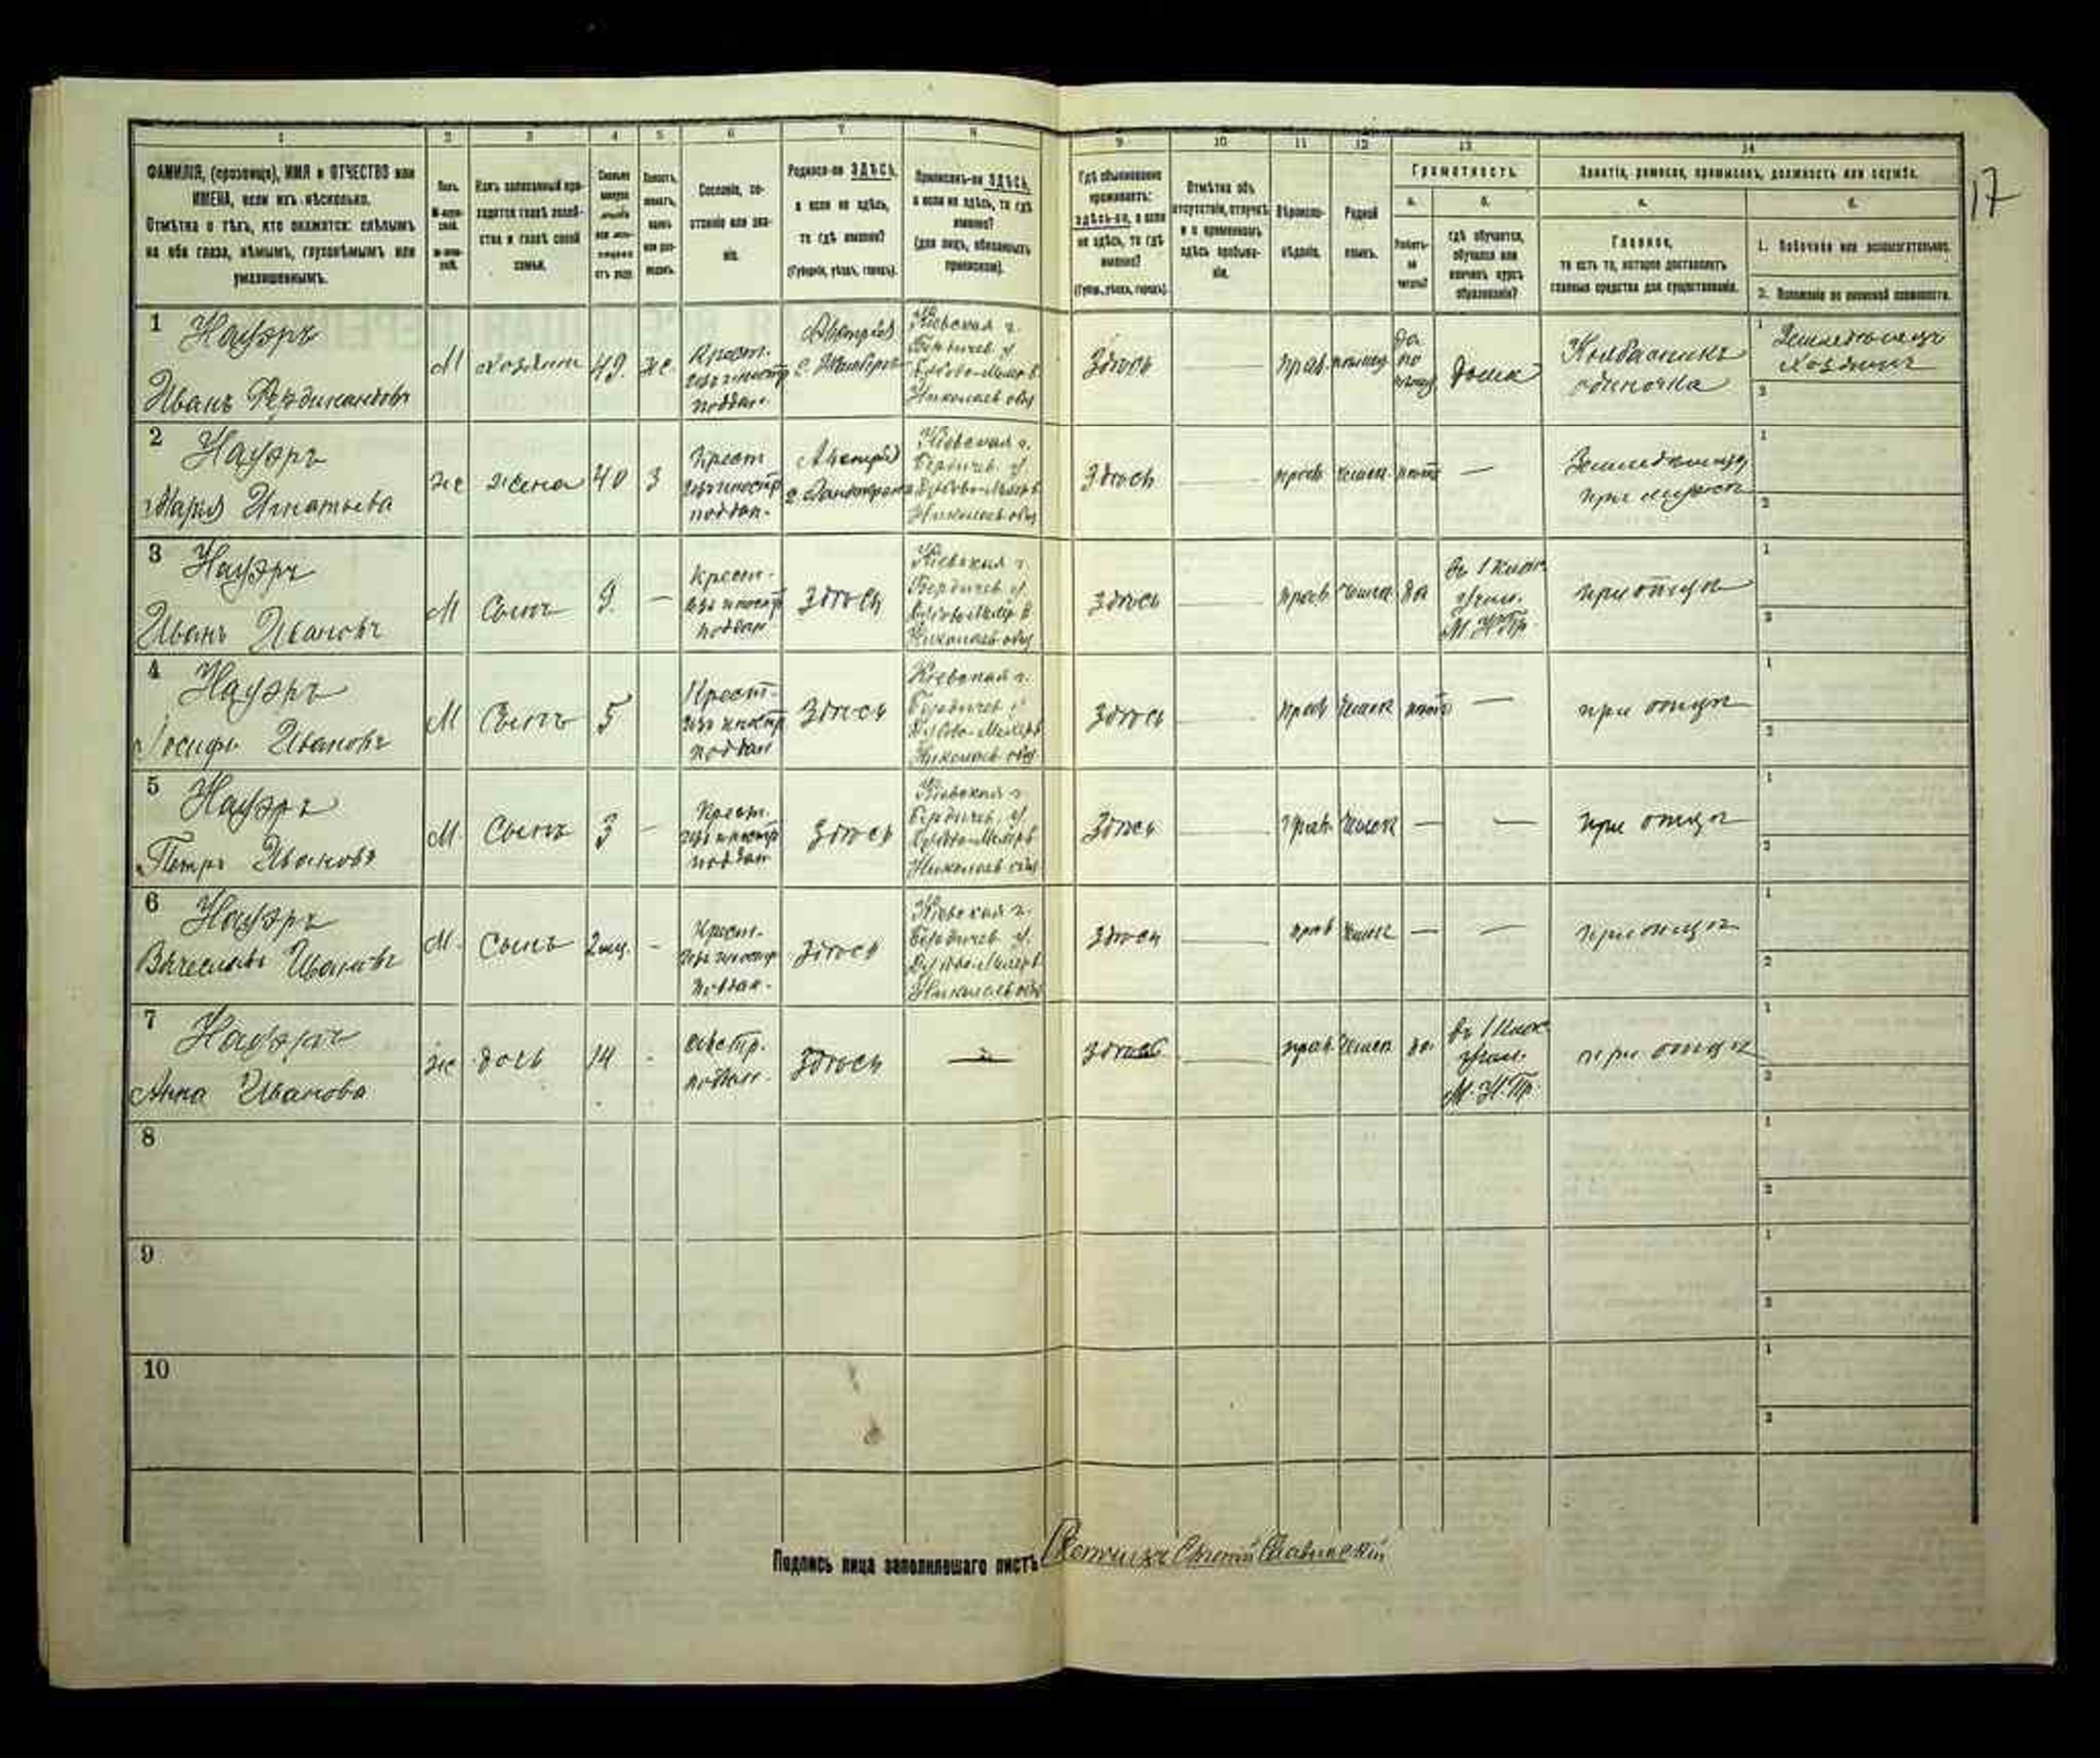 17
1 2 3 4 5 6 7 8 9 10 11 12 13 14
ФАМИЛІЯ, (прозвище), ИМЯ и ОТЧЕСТВО или
ИМЕНА, если ихъ нѣсколько.
Отмѣтка о тѣхъ, кто окажется: слѣпымъ
на оба глаза, нѣмымъ, глухонѣмымъ или
умалишеннымъ.
Полъ.
Какъ записанный при-
ходится главѣ хозяй-
ства и главѣ своей
семьи.
Сословіе, со-
стояніе или зва-
ніе.
Родился-ли ЗДѢСЬ,
а если не здѣсь,
то гдѣ именно?
(Губернія, уѣздъ, городъ).
Приписанъ-ли ЗДѢСЬ,
а если не здѣсь, то гдѣ
именно?
(для лицъ, обязанныхъ
припискою).
Гдѣ обыкновенно
проживаетъ:
здѣсь-ли, а если
не здѣсь, то гдѣ
именно?
(Губер., уѣздъ, городъ).
Отмѣтка объ
отсутствіи, отлучкѣ
и о временномъ
здѣсь пребыва-
ніи.
Вѣроиспо-
вѣданіе.
Родной
языкъ.
Грамотность.
а. б.
гдѣ обучается,
обучался или
кончилъ курсъ
образованія?
Занятіе, ремесло, промыселъ, должность или служба.
а. б.
Главное,
то есть то, которое доставляетъ
главныя средства для существованія.
1. Побочное или вспомогательное.
2. Положеніе по воинской повинности.
1 Науэръ
Иванъ Фердинандовъ
М хозяинъ 49. ж.
Крест.
изъ иностр
поддан.
Австрія
Кіевская г.
Бердичев. у
Николаев общ
Здѣсь прав.
да
по
дома
Колбасникъ
одиночка
1 Земледѣлецъ
хозяинъ
2
2 Науэръ
Марія Игнатьева
ж жена 40 З
Крест
изъ иностр
поддан.
Австрія
Кіевская г.
Бердичев. у.
Николаев общ
Здѣсь прав чешск. нѣтъ —
Земледѣлица
при мужѣ
1
2
3 Науэръ
Иванъ Ивановъ
М Сынъ 9. —
Крест.
изъ иностр
поддан
Здѣсь
Кіевская г
Бердичев у.
Николаев общ
Здѣсь прав. чешск. да
въ 1 клас.
учил.
М. Н. Пр.
при отцѣ
1
2
4 Науэръ
Іосифъ Ивановъ
М Сынъ 5
Крест.
изъ иностр
поддан
Здѣсь
Кіевская г.
Бердичев у
Николаев общ
Здѣсь прав чешск нѣтъ —
при отцѣ
1
2
5 Науэръ
Петръ Ивановъ
М. Сынъ 3 —
Крест.
изъ иностр
поддан
Здѣсь
Кіевская г
Бердичев. у.
Николаев общ
Здѣсь прав. чешск — —
при отцѣ
1
2
6 Науэръ
Вячеславъ Ивановъ
М. Сынъ 2 мц. -
Крест.
изъ иностр
поддан.
Здѣсь
Кіевская г.
Бердичев у.
Николаев общ
Здѣсь прав чешск — —
при отцѣ
1
2
7 Науэръ
Анна Иванова
ж дочь 14 -
Австр.
поддан.
Здѣсь —
Здѣсь прав. чешск да.
въ 1 клас
учил.
М. Н. Пр.
при отцѣ
1
2
8
1
2
9
1
2
10
1
2
Подпись лица заполнившаго листъ